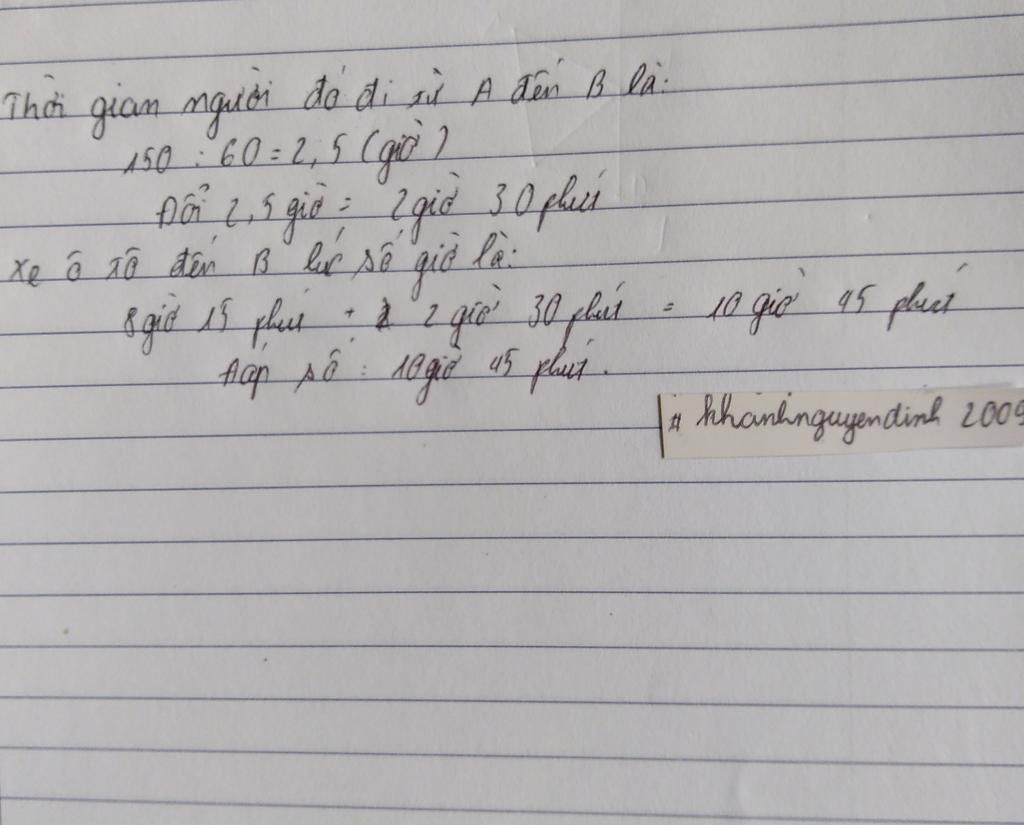 Thời gian người đó đi từ A đến B là:
150 : 60 = 2,5 (giờ)
Đổi 2,5 giờ = 2 giờ 30 phút
Xe ô tô đến B lúc số giờ là:
8 giờ 15 phút + 2 giờ 30 phút = 10 giờ 45 phút
Đáp số : 10 giờ 45 phút.
# khanhnguyendinh 2009